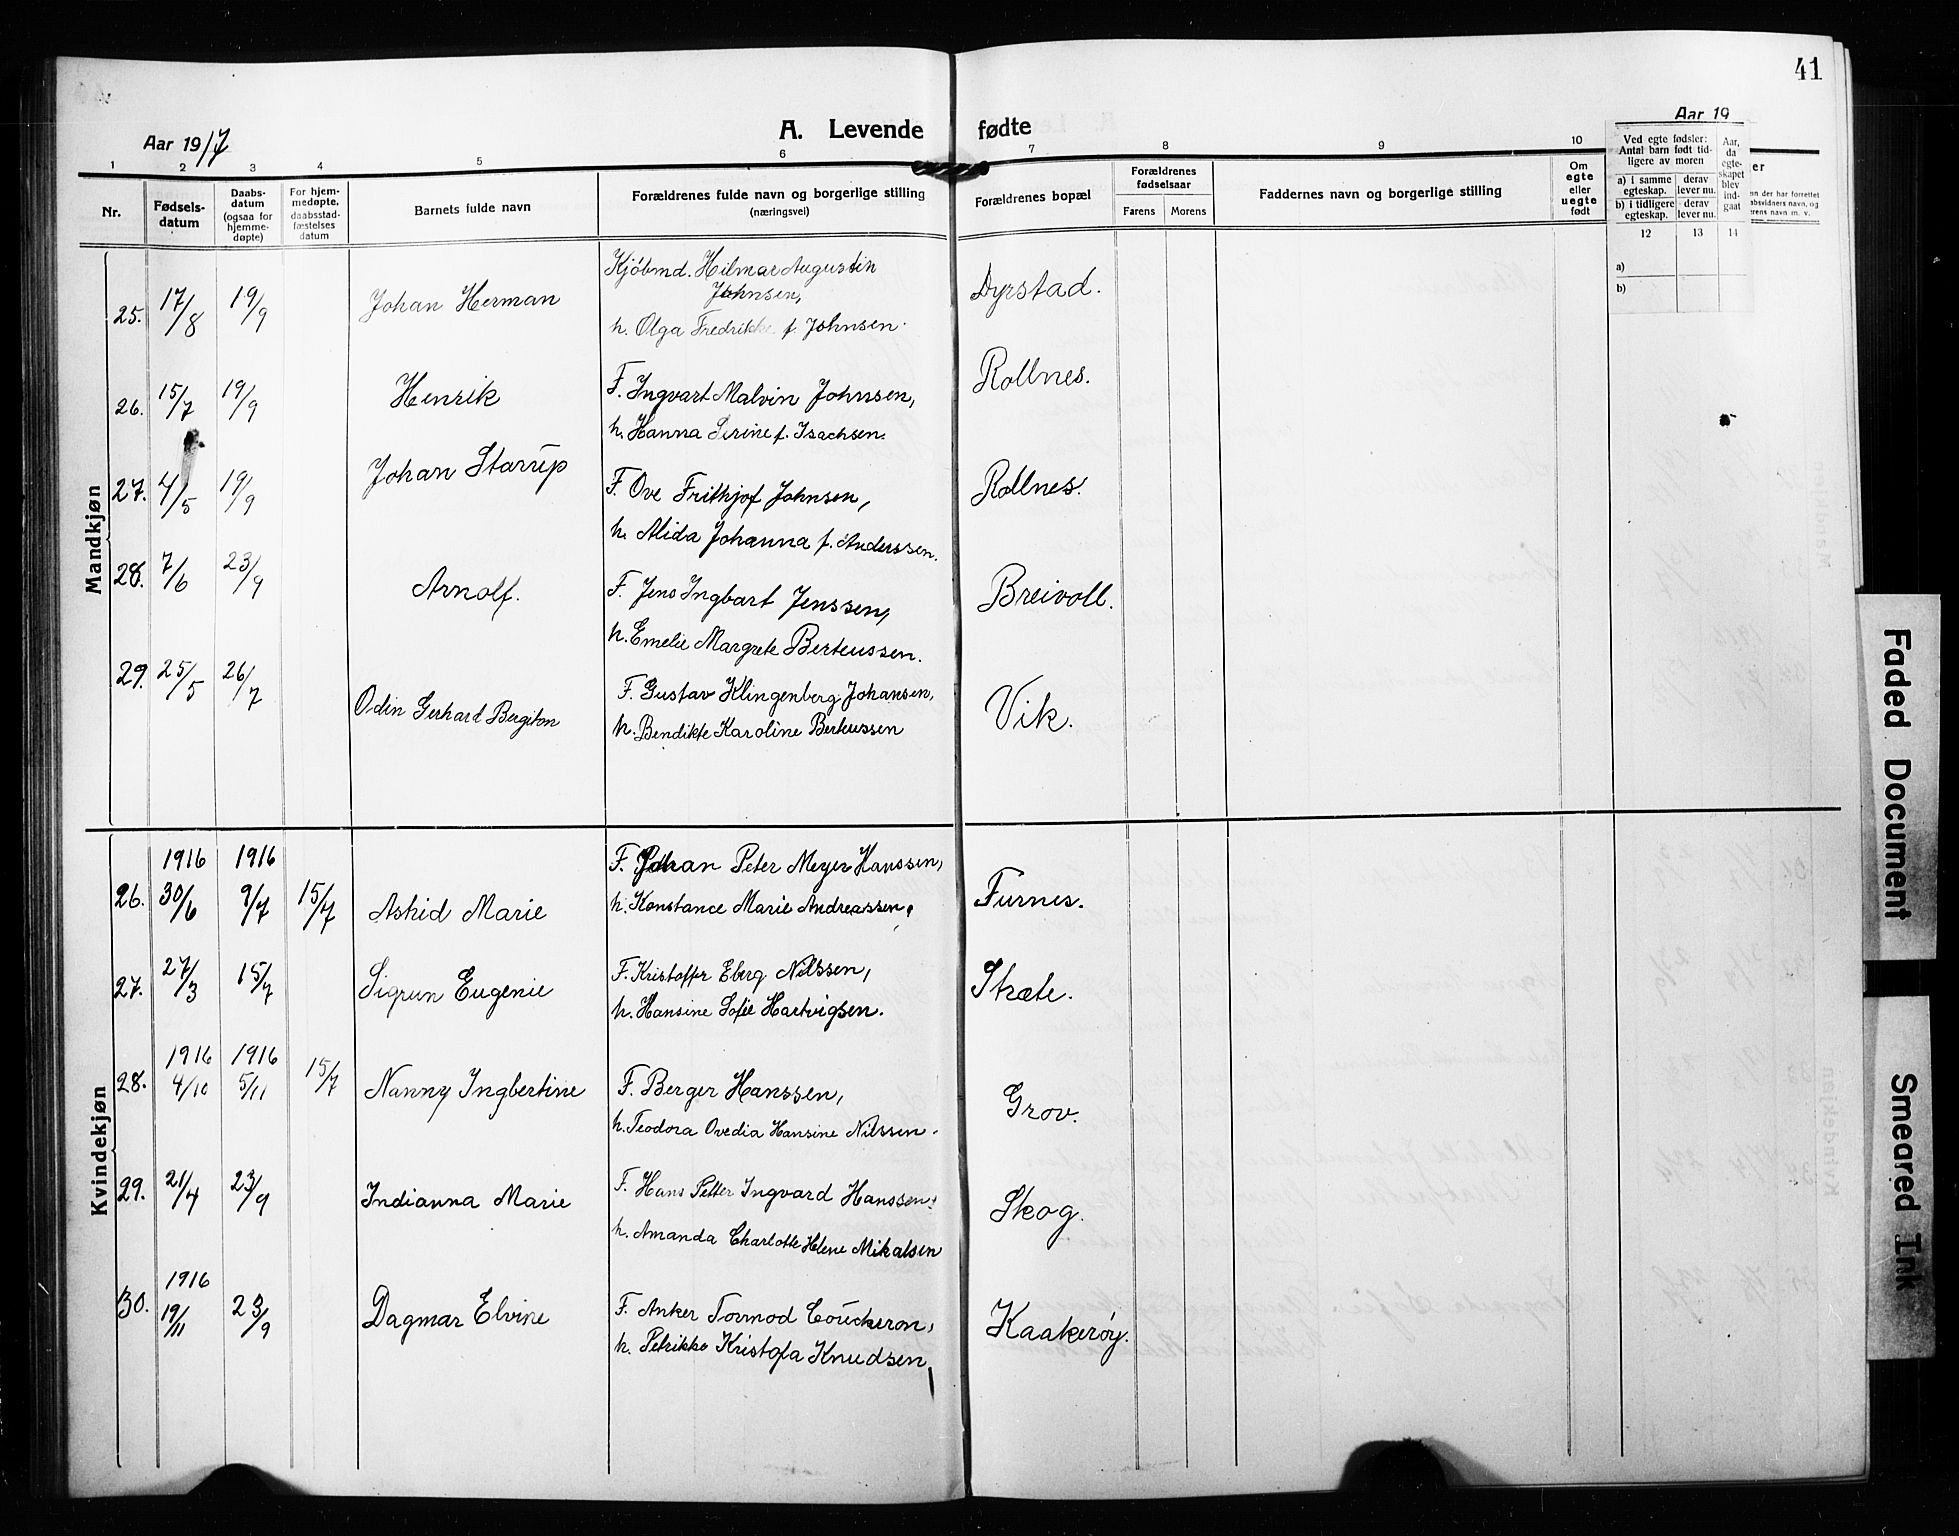 41
Aar 1917
A. Levende fødte
Aar 19
1 2 3 4 5 6 7 8 9 10
Nr.
Fødsels-
datum
Daabs-
datum
(ogsaa for
hjemme-
døpte)
For hjem-
medøpte,
daabsstad-
fæstelses
datum
Barnets fulde navn
Forældrenes fulde navn og borgerlige stilling
(næringsvei)
Forældrenes bopæl
Forældrenes
fødselsaar
Farens Morens
Faddernes navn og borgerlige stilling
Om
egte
eller
uegte
født
Ved egte fødsler:
Antal barn født tid-
ligere av moren
a) i samme
egteskap.
derav
lever nu.
b) i tidligere
egteskap.
derav
lever nu.
Aar,
da
egte-
skapet
blev
ind-
gaat
12 13 14
a)
b)
er
n der har forrettet
absvidners navn, og
erens navn m. v.
Mandkjøn
25. 17/8 19/9 Johan Herman
Kjøbmd. Hilmar Augustin
Johnsen,
h. Olga Fredrikke f. Johnsen.
Dyrstad.
26. 15/7 19/9 Henrik
F. Ingvart Malvin Johnsen,
h. Hanna Serine f. Isachsen.
Rollnes.
27. 4/5 19/9 Johan Starup
F. Ove Frithjof Johnsen,
h. Alida Johanna f. Anderssen.
Rollnes.
28. 7/6 23/9 Arnolf.
F. Jens Ingbart Jenssen,
h. Emelie Margrete Berteussen.
Breivoll.
29. 25/5 26/7 Odin Gerhard Bergiton
F. Gustav Klingenberg Johansen,
h. Bendikte Karoline Berteussen
Vik.
Kvindekjøn
1916 1916
26. 30/6 9/7 15/7 Astrid Marie
F. Johan Peter Meyer Hanssen,
h. Konstance Marie Andreassen,
Furnes.
27. 27/3 15/7 Sigrun Eugenie
F. Kristoffer Eberg Nilssen,
h. Hansine Sofie Hartvigsen.
Stræte.
1916 1916
28. 4/10 5/11 15/7 Nanny Ingbertine
F. Berger Hanssen,
h. Teodora Ovedia Hansine Nilssen.
Grov.
29. 21/4 23/9 Indianna Marie
F. Hans Petter Ingvard Hanssen,
h. Amanda Charlotte Helene Mikalsen
Skog.
1916
30. 19/11 23/9 Dagmar Elvine
F. Anker Tormod Coucheron,
h. Petrikke Kristofa Knudsen,
Kaakerøy.
Faded Document
Smeared Ink